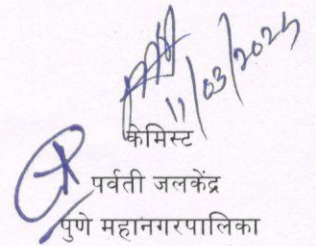 11/03/2025
केमिस्ट
पर्वती जलकेंद्र
पुणे महानगरपालिका